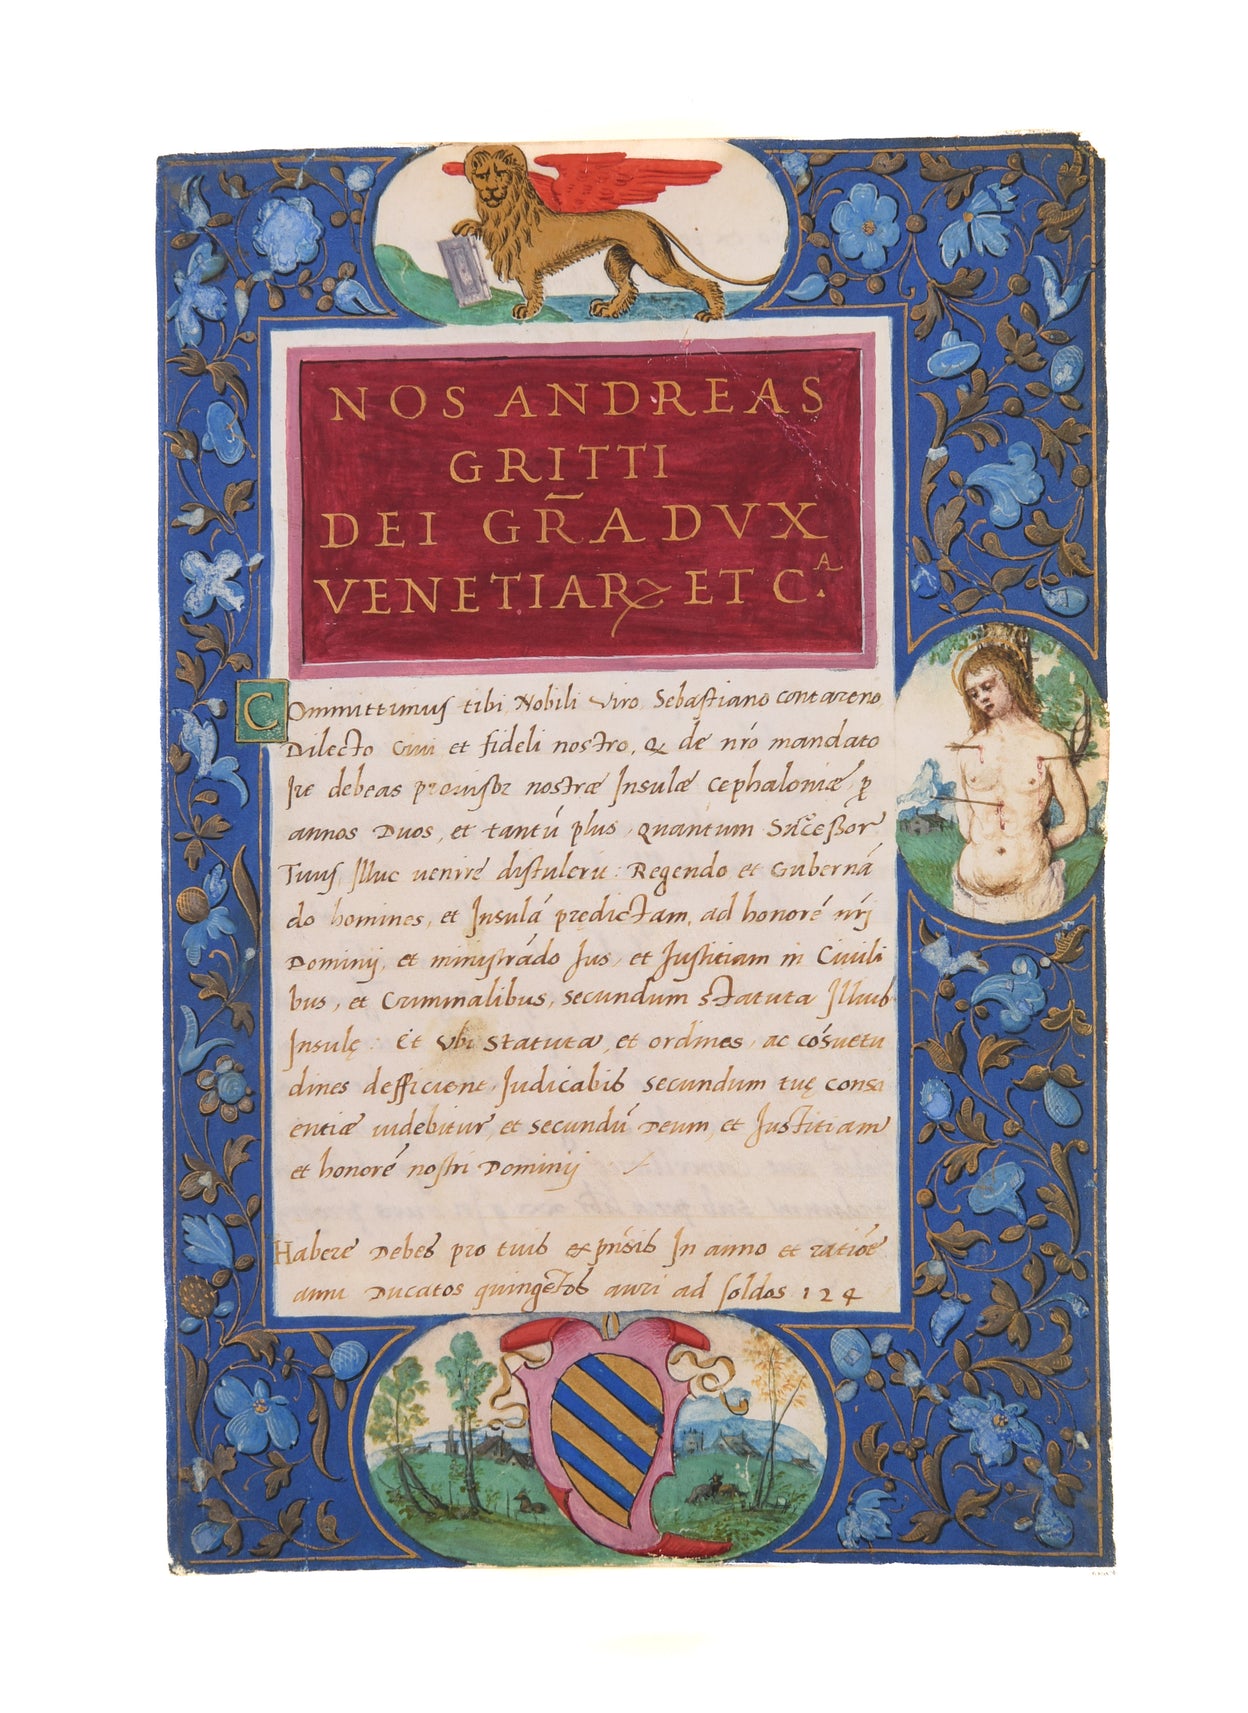 NOS ANDREAS
GRITTI
DEI GR̅A DVX
VENETIARꝝ ET Cᴬ.
Committimus tibi Nobili Viro Sebastiano contareno
Dilecto Ciui et fideli nostro, Q. de nr̃o mandato
Ire debeas prouisor nostræ Insulæ Cephaloniæ ꝑ
annos Duos, et tantũ plus, Quantum Successor
Tuus Illuc uenire distulerit: Regendo et Gubernã
do homines, et Insulã prędictam, ad honorẽ nr̃j
Dominij, et ministrãdo Jus, et Justitiam in Ciuili
bus, et Criminalibus, secundum statuta Illius
Insulę: Et Vbi statuta, et ordines, ac cõsuetu
dines defficient, Judicabis secundum tuę consci
entiæ uidebitur, et secundũ Deum, et Justitiam
et honorẽ nostri Dominij
Habere Debes pro tuis expẽsis In anno et ratiõe
anni Ducatos quingẽtos auri ad soldos 124